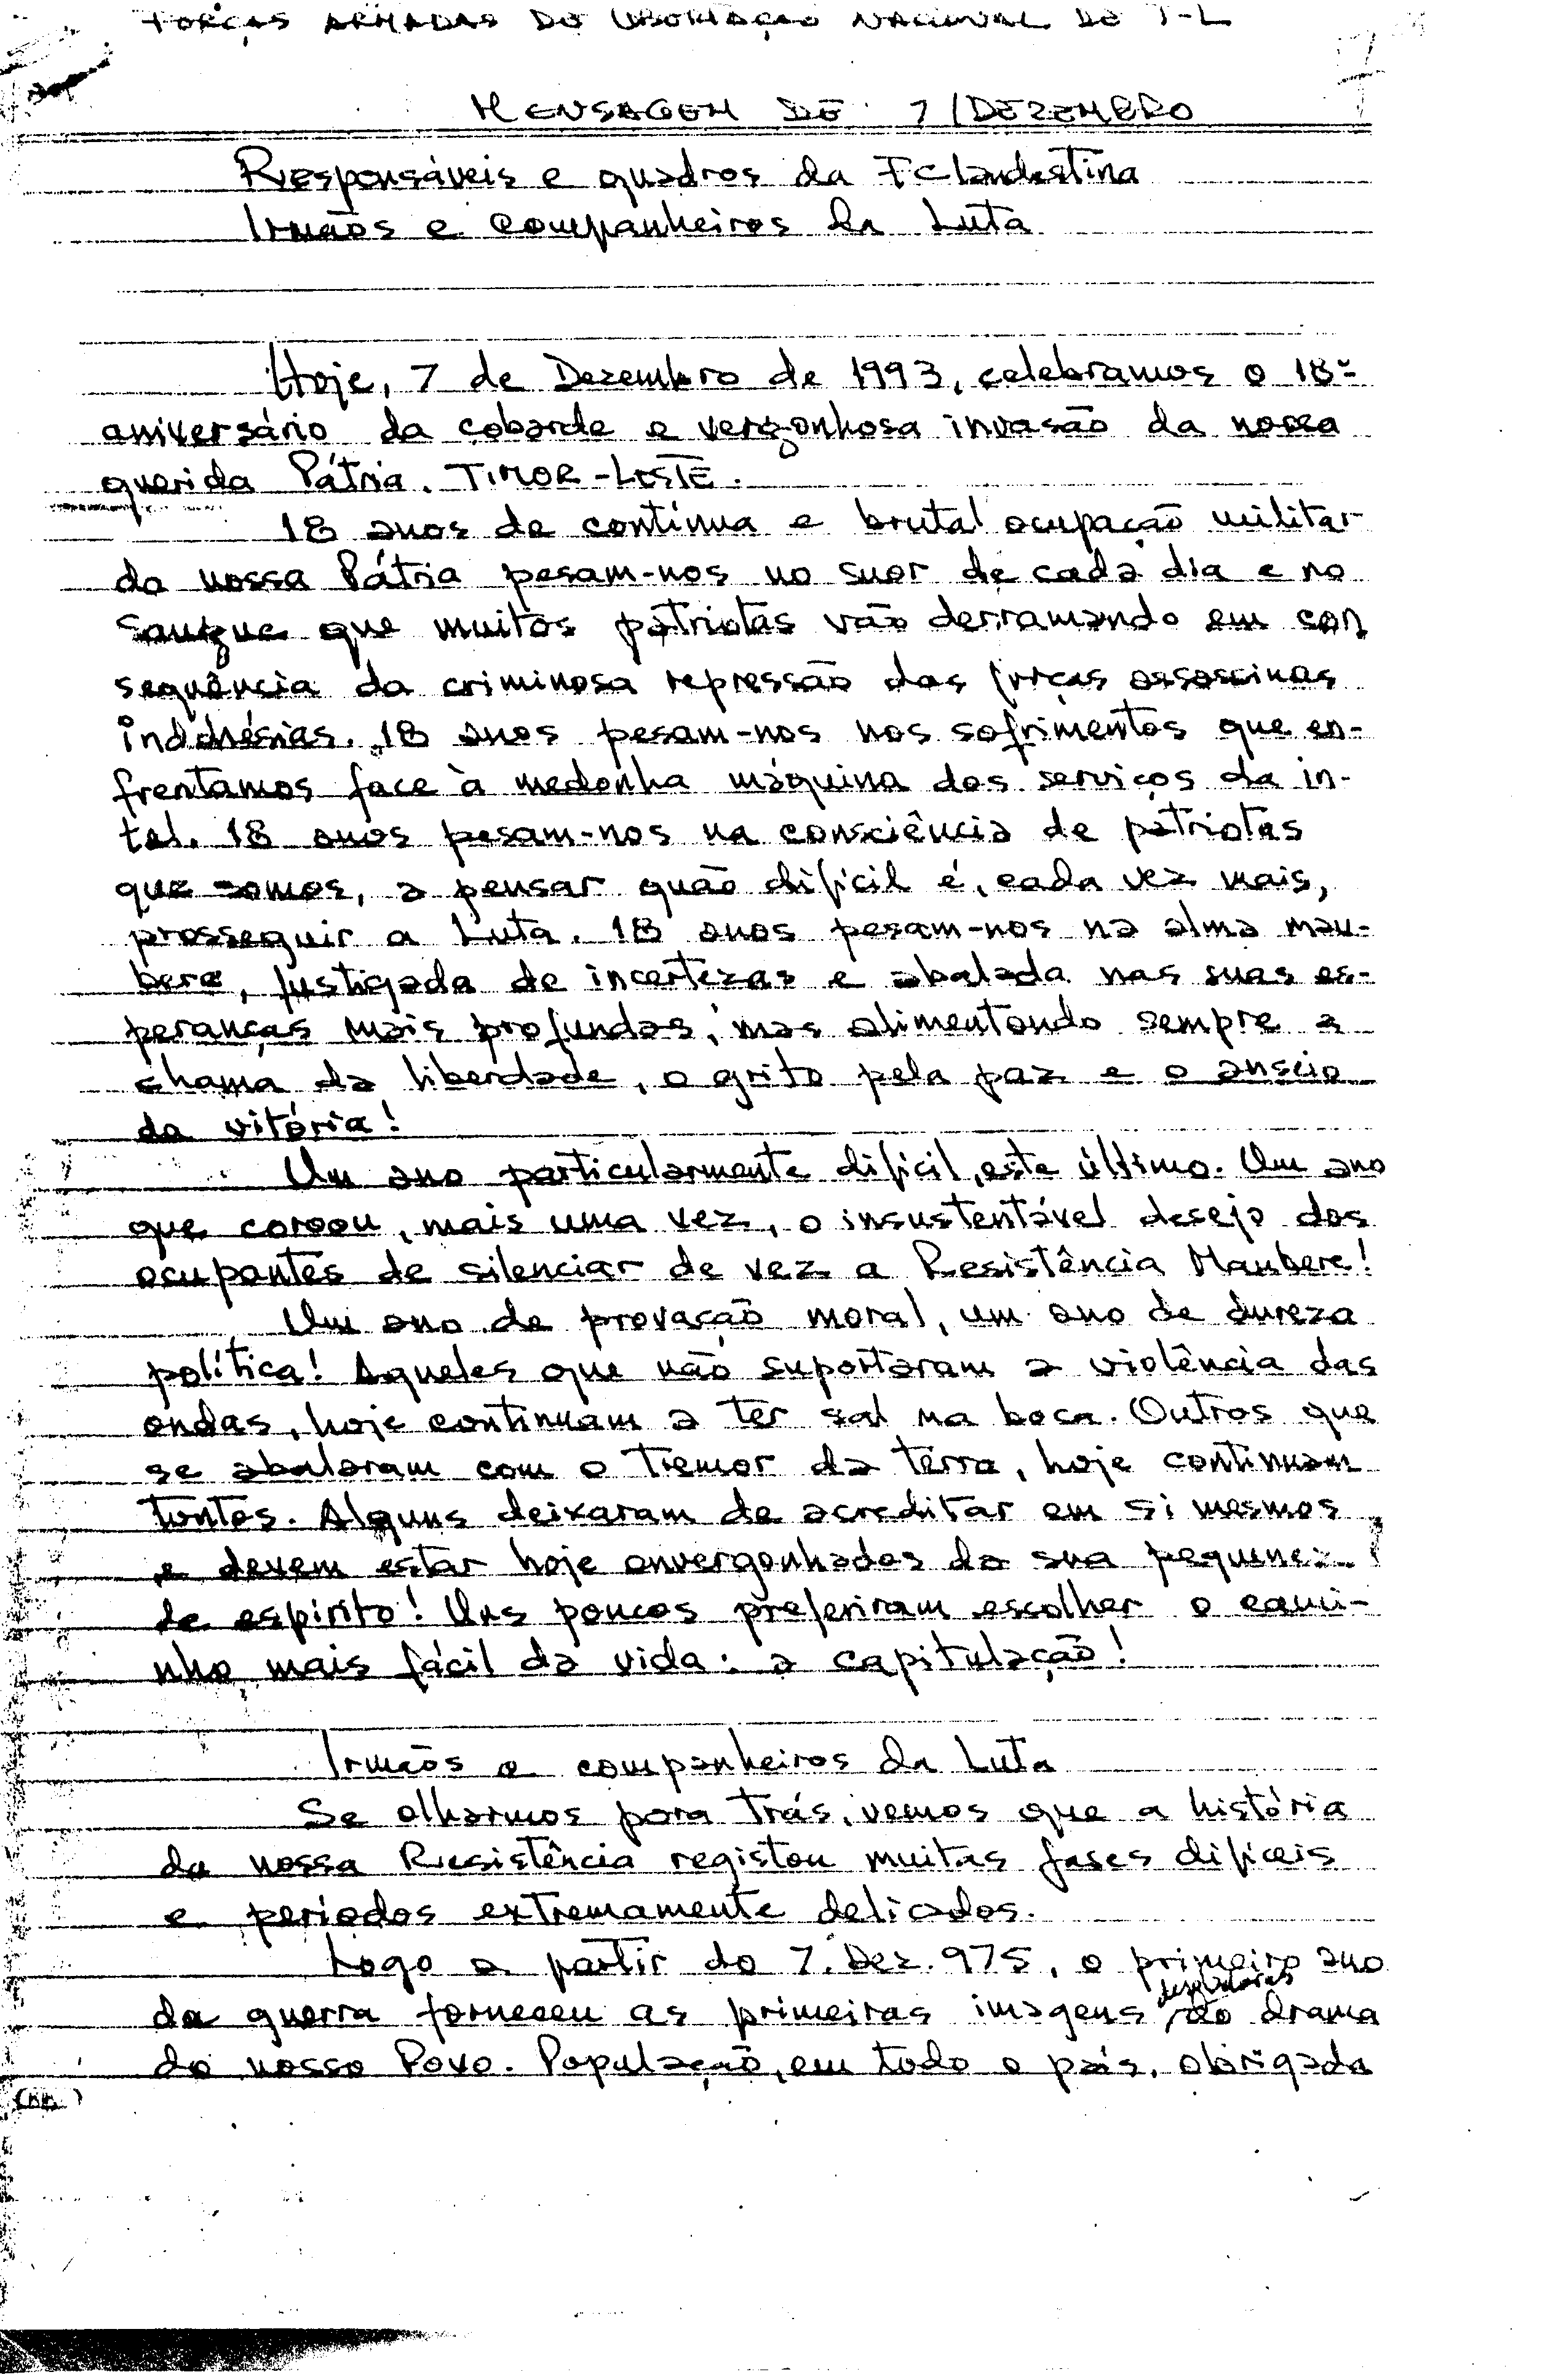 FORÇAS ARMADAS DE LIBERTAÇÃO NACIONAL DE T-L
MENSAGEM DE 7/DEZEMBRO
Responsáveis e quadros da FClandestina
Irmãos e companheiros da Luta
Hoje, 7 de Dezembro de 1993, celebramos o 18º
aniversário da cobarde e vergonhosa invasão da nossa
querida Pátria. TIMOR-LESTE.
18 anos de contínua e brutal ocupação militar
da nossa Pátria pesam-nos no suor de cada dia e no
sangue que muitos patriotas vão derramando em con
sequência da criminosa repressão das forças assassinas
indonésias. 18 anos pesam-nos nos sofrimentos que en-
frentamos face à medonha máquina dos serviços da in-
tel. 18 anos pesam-nos na consciência de patriotas
que somos, a pensar quão difícil é, cada vez mais,
prosseguir a Luta. 18 anos pesam-nos na alma mau-
bere, fustigada de incertezas e abalada nas suas es-
peranças mais profundas, mas alimentando sempre a
chama da liberdade, o grito pela paz e o anseio
da vitória!
Um ano particularmente difícil, este último. Um ano
que coroou, mais uma vez, o insustentável desejo dos
ocupantes de silenciar de vez a Resistência Maubere!
Um ano de provação moral, um ano de dureza
política! Aqueles que não suportaram a violência das
ondas, hoje continuam a ter sal na boca. Outros que
se abalaram com o tremor da terra, hoje continuam
tontos. Alguns deixaram de acreditar em si mesmos
e devem estar hoje envergonhados da sua pequenez
de espírito! Uns poucos preferiram escolher o cami-
nho mais fácil da vida: a capitulação!
Irmãos e companheiros da Luta
Se olharmos para trás, vemos que a história
da nossa Resistência registou muitas fases difíceis
e períodos extremamente delicados.
Logo a partir do 7. Dez. 975, o primeiro ano
da guerra forneceu as primeiras imagens do drama
do nosso Povo. População, em todo o país, obrigada